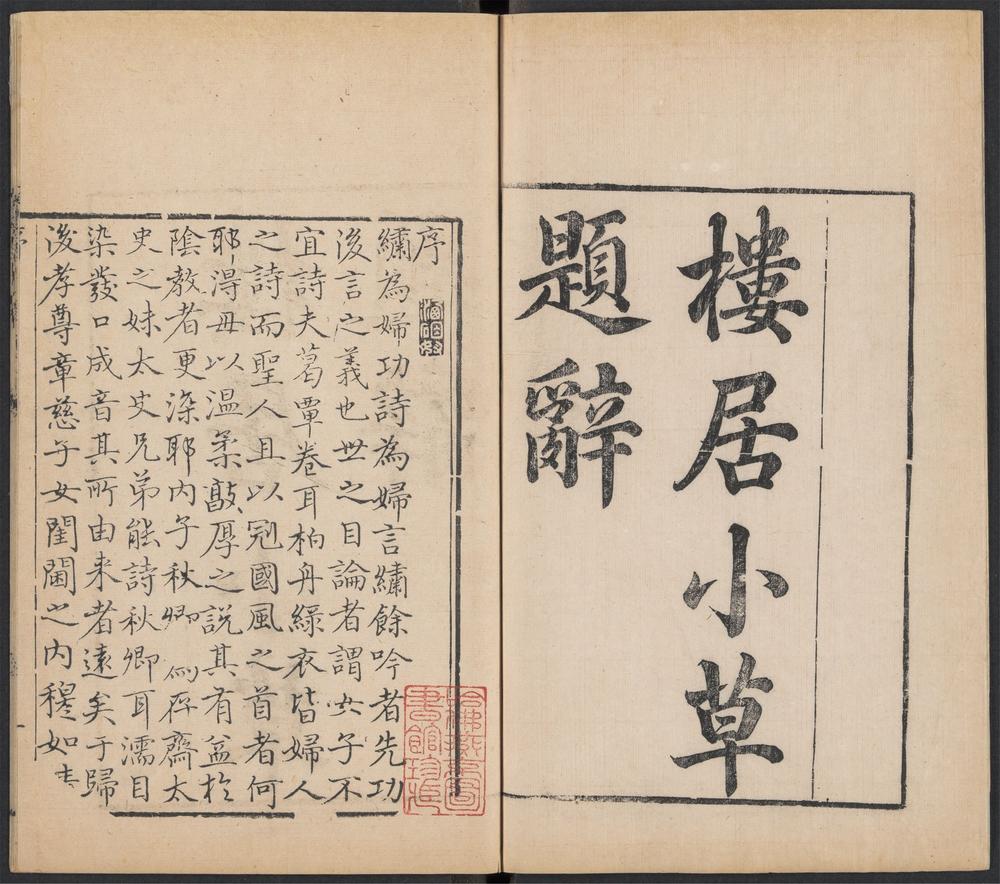 樓居小草
題辭
序
繡為婦功詩為婦言繡餘吟者先功
後言之義也世之目論者謂女子不
宜詩夫葛覃卷耳柏舟綠衣皆婦人
之詩而聖人且以冠國風之首者何
耶得毋以温柔敦厚之說其有益於
陰教者更深耶內子秋卿 存齋太
史之妹太史兄弟能詩秋卿耳濡目
染發口成音其所由来者遠矣于歸
後孝尊章慈子女閨閫之內穆如
哈佛燕京圖書館珍藏